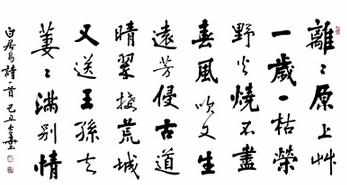 離〻原上艸
一歲一枯榮
野火燒不盡
春風吹又生
遠芳侵古道
晴翠接荒城
又送王孫去
萋〻滿別情
白居易詩一首 己丑